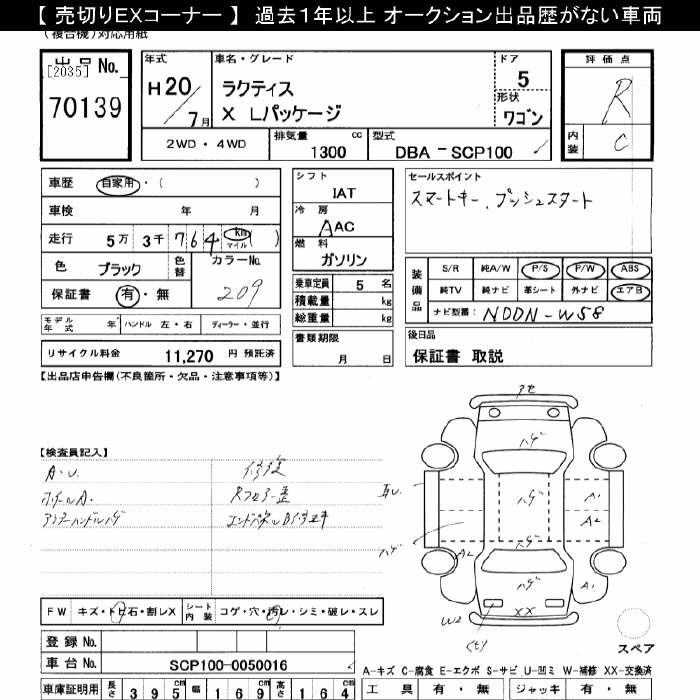 【 売切りEXコーナー 】 過去１年以上 オークション出品歴がない車両
(複合機)対応用紙
出品 No.
[2035]
70139
年式
H20/7月
車名・グレード
ラクティス
X Lパッケージ
ドア
5
形状
ワゴン
評価点
R
内装
C
2WD・4WD
排気量
1300
cc
型式
DBA － SCP100
車歴
自家用・( )
車検
年 月
走行
5万 3千 764 km マイル ( )
色
ブラック
色替
カラーNo.
209
保証書
有・無
モデル年式
年
ハンドル 左・右
ディーラー・並行
リサイクル料金
11,270 円 預託済
シフト
IAT
冷房
AAC
燃料
ガソリン
乗車定員 5 名
積載量 kg
総重量 kg
書類期限
月 日
セールスポイント
スマートキー、プッシュスタート
装備品
S/R 純A/W P/S P/W ABS
純TV 純ナビ 革シート 外ナビ エアB
ナビ型番: NDDN-W58
後日品
保証書 取説
【出品店申告欄(不良箇所・欠品・注意事項等)】
【検査員記入】
A.U.
ホイールA.
アウターハンドルハゲ
修復
Rフロアー歪
FW キズ・トビ石・割レX
シート内装 コゲ・穴・汚レ・シミ・破レ・スレ
登録 No.
車台 No. SCP100-0050016
車庫証明用 長さ 395cm 幅 169cm 高さ 164cm
ハゲ
ハゲ
ハゲ
ハゲ
ハゲ
A1
A2
A2
A1
W2
XX
スペア
A-キズ C-腐食 E-エクボ S-サビ U-凹ミ W-補修 XX-交換済
工具 有・無 ジャッキ 有・無